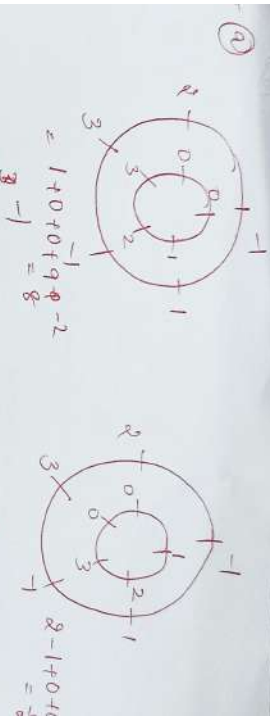 (2)
2
-1
1
-1
3
0
0
1
2
3
= 1+0+0+9 -2
-1
= 8
2
-1
1
-1
3
0
1
2
3
0
2-1+0+
=